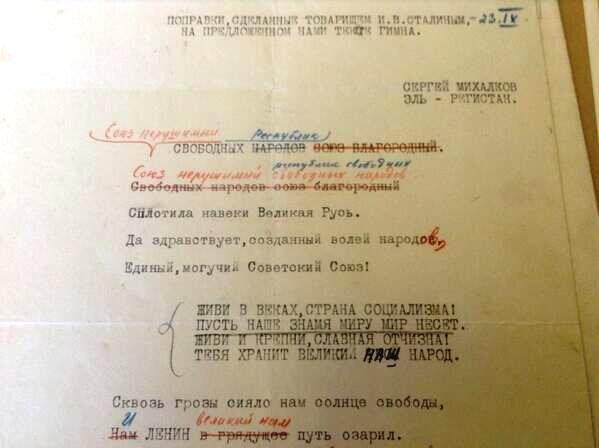 ПОПРАВКИ, СДЕЛАННЫЕ ТОВАРИЩЕМ И.В.СТАЛИНЫМ,- 23.IX.
НА ПРЕДЛОЖЕННОМ НАМИ ТЕКСТЕ ГИМНА.
СЕРГЕЙ МИХАЛКОВ
ЭЛЬ - РЕГИСТАН.
Союз нерушимый Республик
СВОБОДНЫХ НАРОДОВ СОЮЗ БЛАГОРОДНЫЙ.
республик свободных
Союз нерушимый свободных народов
Свободных народов союз благородный
Сплотила навеки Великая Русь.
Да здравствует, созданный волей народов,
Единый, могучий Советский Союз!
ЖИВИ В ВЕКАХ, СТРАНА СОЦИАЛИЗМА!
ПУСТЬ НАШЕ ЗНАМЯ МИРУ МИР НЕСЕТ.
ЖИВИ И КРЕПНИ, СЛАВНАЯ ОТЧИЗНА!
ТЕБЯ ХРАНИТ ВЕЛИКИЙ НАШ НАРОД.
Сквозь грозы сияло нам солнце свободы,
И великий нам
Нам ЛЕНИН в грядущее путь озарил.